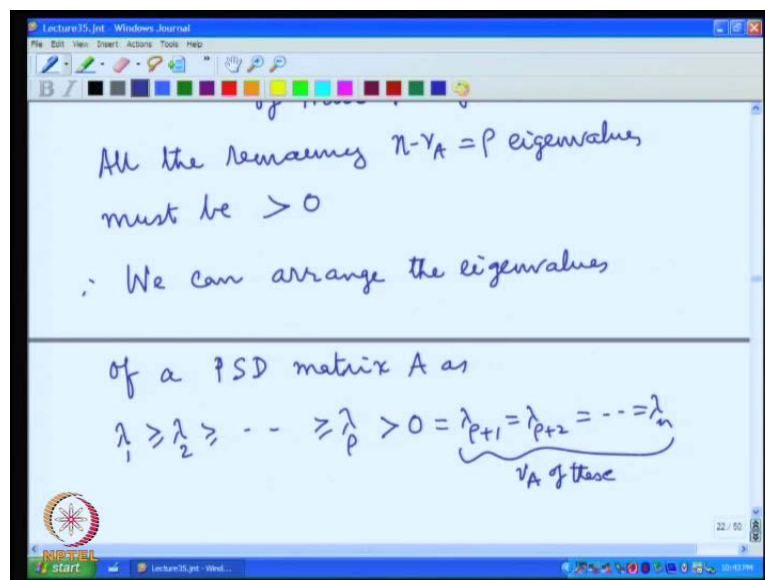 Lecture35.jnt - Windows Journal
File Edit View Insert Actions Tools Help
B I
of these
All the remaining n-νA = ρ eigenvalues
must be > 0
∴ We can arrange the eigenvalues
of a PSD matrix A as
λ1 ≥ λ2 ≥ - - ≥ λρ > 0 = λρ+1 = λρ+2 = - - = λn
νA of these
22 / 50
NPTEL
start Lecture35.jnt - Wind... 10:43 PM